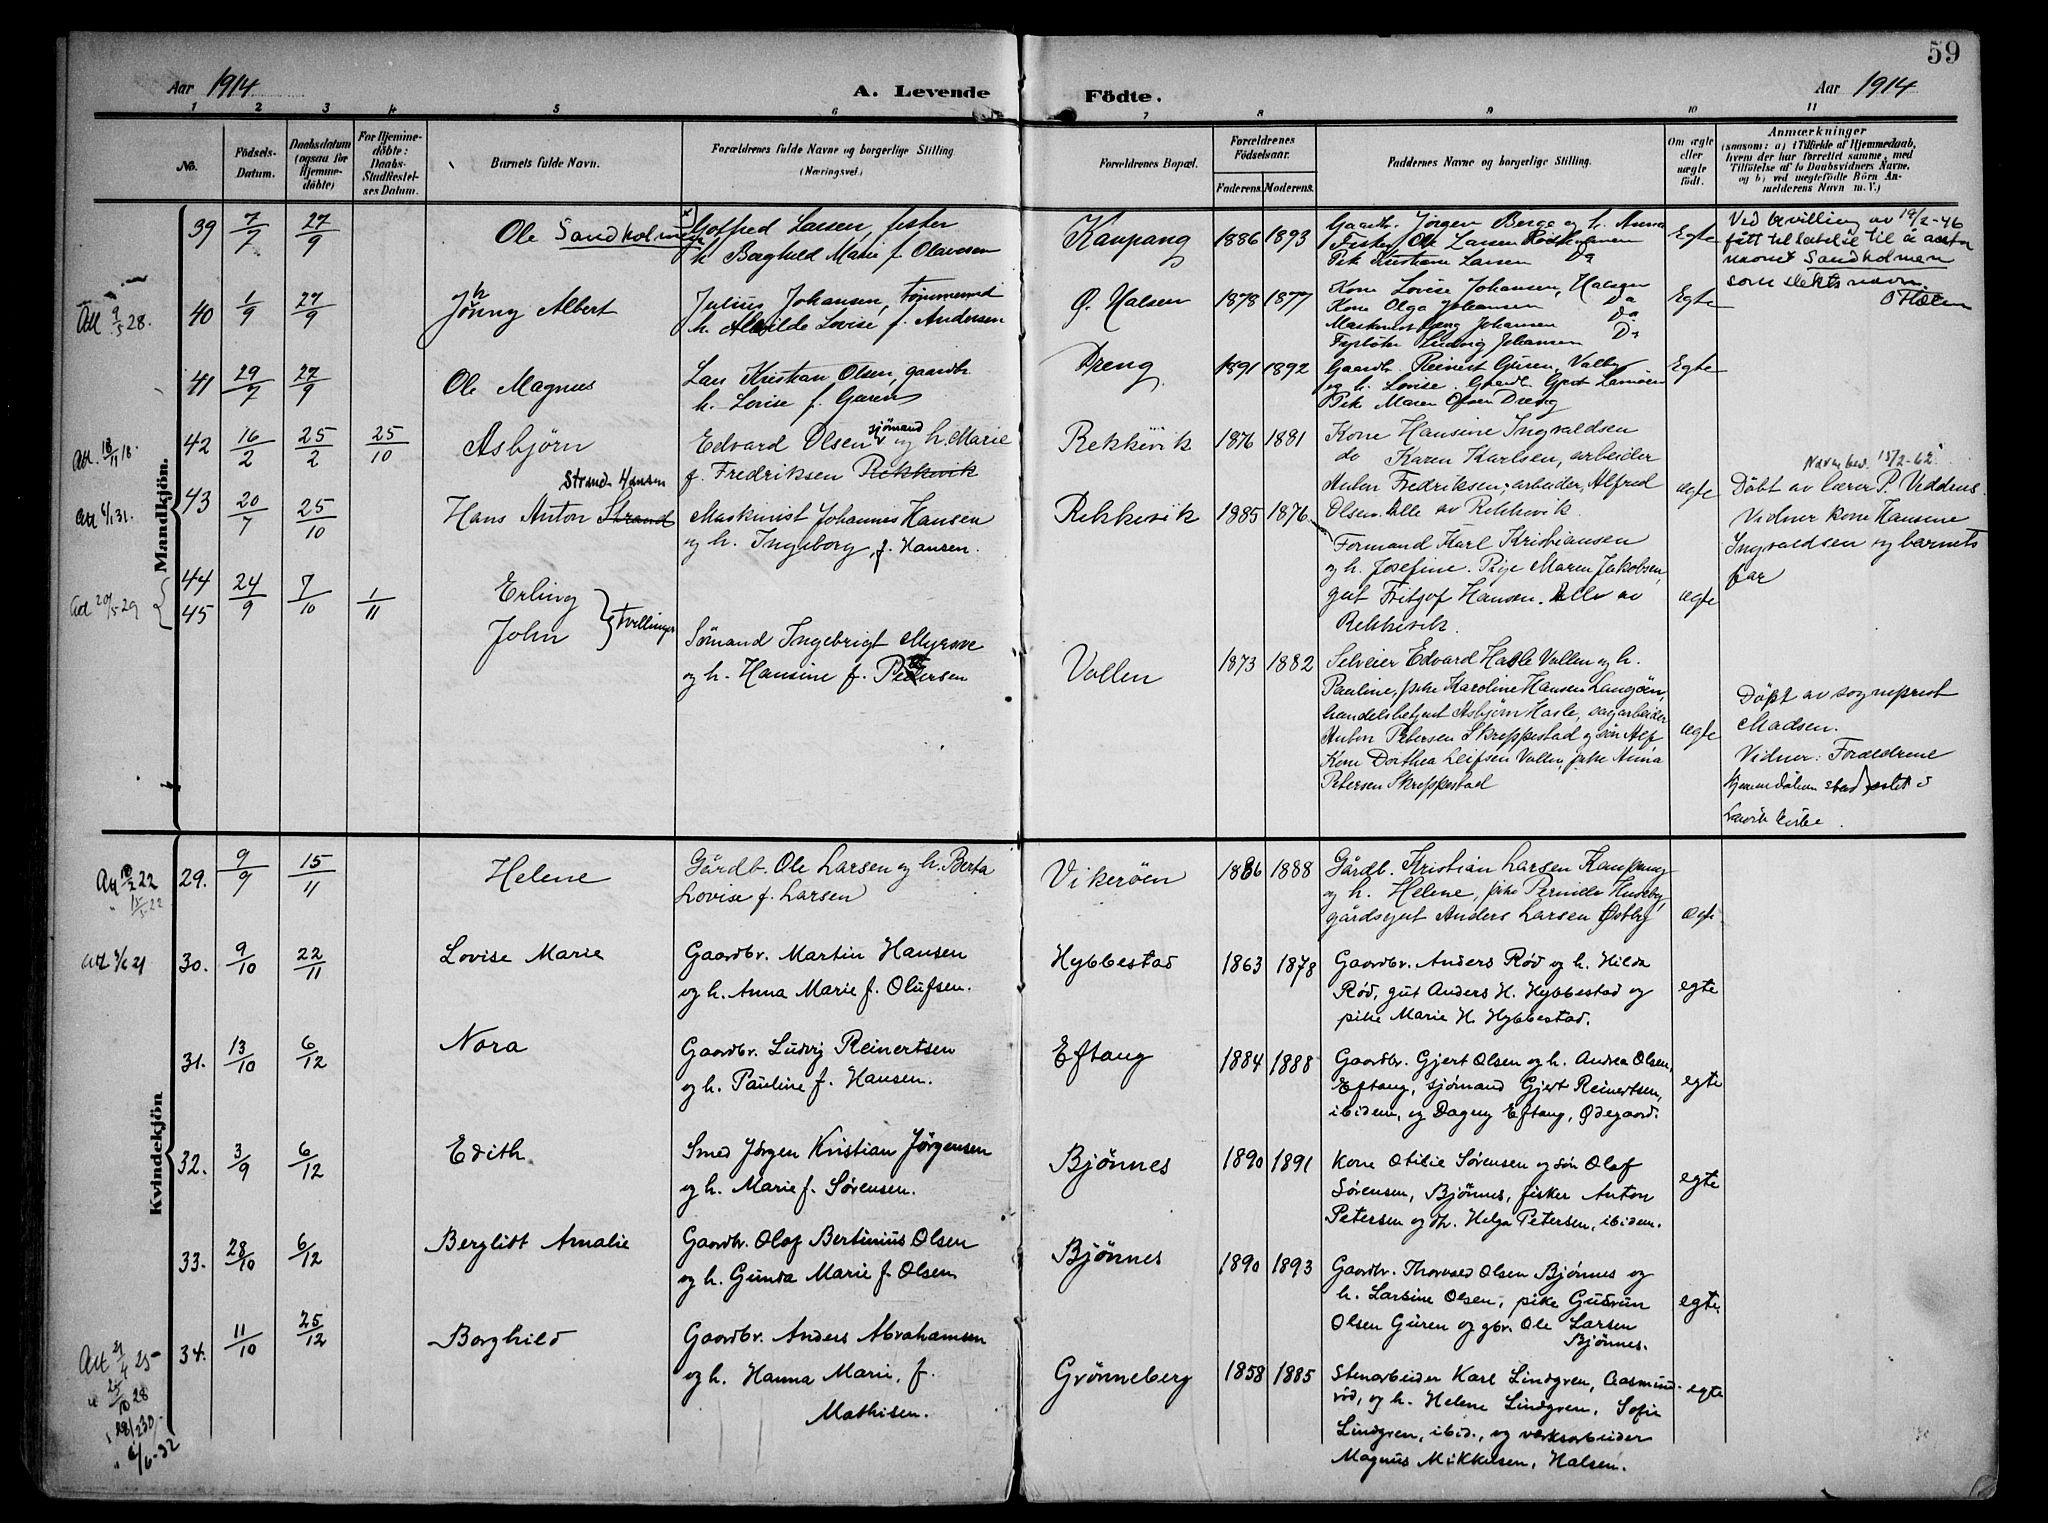 59
Aar 1914
A. Levende
Födte.
Aar 1914
1 2 3 4 5 6 7 8 9 10 11
No.
Födsels-
Datum.
Daabsdatum
(ogsaa for
Hjemme-
döbte)
For Hjemme-
döbte:
Daabs-
Stadfæstel-
ses Datum.
Barnets fulde Navn.
Forældrenes fulde Navne og borgerlige Stilling
(Næringsvei.)
Forældrenes Bopæl.
Forældrenes
Födselsaar.
Faderens. Moderens.
Faddernes Navne og borgerlige Stilling.
Om ægte
eller
uægte
födt.
Anmærkninger
(saasom: a) i Tilfælde af Hjemmedaab,
hvem der har forrettet samme, med
Tilföielse af to Daabsvidners Navne,
og b) ved uægtefödte Börn An-
melderens Navn m. V.)
Mandkjön.
39 7/7 27/9 Ole Sandholmen
Gotfred Larsen, fisker
h. Borghild Marie f. Olavesen
Kaupang 1886 1893
Gaardb. Jørgen Berge og h. Anna
Fisker Ole Larsen
Pike Kristiane Larsen Do
Egte
Ved bevilling av 19/2-46
fått tillatelse til å anta
navnet Sandholmen
som slektsnavn.
40 1/9 27/9 Johnny Albert
Julius Johansen, tømmermd
h. Alvilde Lovise f. Andersen
Ø. Halsen 1878 1877
Kone Lovise Johansen, Halsen
Kone Olga Johansen Do
Maskinist Georg Johansen Do
Ludvig Johansen Do
Egte
Att 9/5 28.
41 29/7 27/9 Ole Magnus
Lars Kristian Olsen, gaardbr.
h. Lovise f. Guren
Dreng 1891 1892
Gaardb. Reinert Guren, Valby
og h. Lovise. Gaardb. Gert Lamöen
Pike Maren Olsen Dreng
Egte
42 16/2 25/2 25/10 Asbjörn
Edvard Olsen sjömand og h. Marie
f. Fredriksen Rekkevik
Rekkevik 1876 1881
Kone Hansine Ingvaldsen
do Karen Karlsen, arbeider
Anton Fredriksen, arbeider, Alfred
Olsen. Alle av Rekkevik.
ægte
Navnebev. 15/2-62.
Döbt av lærer P. Viddrus
Vidner kone Hansine
Ingvaldsen og barnets
far
43 20/7 25/10 Hans Anton Strand
Strand-Hansen
Maskinist Johannes Hansen
og h. Ingeborg, f. Hansen.
Rekkevik 1885 1876
Formand Karl Kristiansen
og h. Josefine. Pige Maren Jakobsen,
gut Fritjof Hansen. Alle av
Rekkevik.
ægte
44
45
24/9 7/10 1/11
Erling
John
Tvillinger
Sömand Ingebrigt Myrsve
og h. Hansine f. Petersen
Vollen 1873 1882
Selveier Edvard Hasle Vollen og h.
Pauline, pike Karoline Hansen Langöen,
handelsbetjent Asbjörn Hasle, sagarbeider
Anton Petersen Skreppestad og sön Alf
Kone Dorthea Leifsen Vollen, pike Anna
Petersen Skreppestad
ægte
Döpt av sogneprest
Madsen.
Vidner: Forældrene
Hjemmedåben stadfæstet i
Larvik kirke.
Kvindekjön
29. 9/9 15/11 Helene
Gårdb. Ole Larsen og h. Berta
Lovise f. Larsen
Vikerøen 1886 1888
Gårdb. Kristian Larsen Kaupang
og h. Helene, pike Pernille Huseby,
gårdsgut Anders Larsen Østby
30. 9/10 22/11 Lovise Marie
Gaardbr. Martin Hansen
og h. Anna Marie f. Olufsen.
Hybbestad 1863 1878
Gaardbr. Anders Rød og h. Hilda
Rød, gut Anders H. Hybbestad og
pike Marie H. Hybbestad.
egte
31. 13/10 6/12 Nora
Gaardbr. Ludvig Reinertsen
og h. Pauline f. Hansen.
Eftang 1884 1888
Gaardbr. Gjert Olsen og h. Andrea Olsen,
Eftang, sjømand Gjert Reinertsen,
ibidem, og Dagny Eftang, Ødegaard.
egte
32. 3/9 6/12 Edith
Smed Jørgen Kristian Jørgensen
og h. Marie f. Sørensen.
Bjønnes 1890 1891
Kone Otilie Sørensen og søn Olaf
Sørensen, Bjønnes, fisker Anton
Petersen og h. Helga Petersen, ibidem.
egte
33. 28/10 6/12 Berglidt Amalie
Gaardbr. Olaf Bertinius Olsen
og h. Gunda Marie f. Olsen
Bjønnes 1890 1893
Gaardbr. Thorvald Olsen Bjønnes og
h. Larsine Olsen, pike Gudrun
Olsen Guren og gbr. Ole Larsen
Bjønnes.
egte
34. 11/10 25/12 Borghild
Gaardbr. Anders Abrahamsen
og h. Hanna Marie, f.
Mathisen.
Grønneberg 1858 1885
Stenarbeider Karl Lindgren, Aasmund-
rød, og h. Helene Lindgren, Sofie
Lindgren, ibid., og verksarbeider
Magnus Mikkelsen, Halsen.
egte